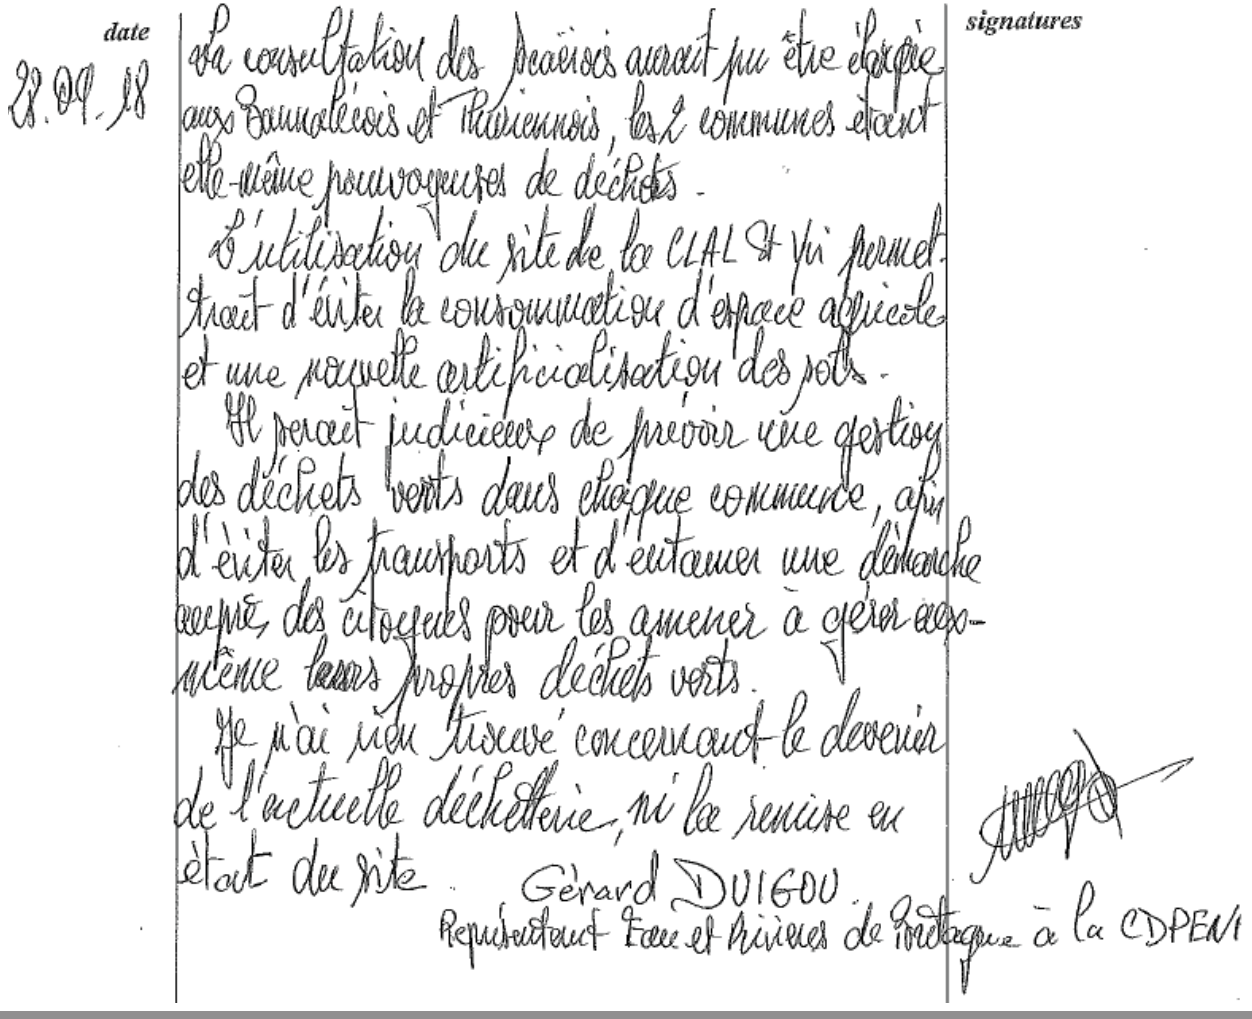 date
signatures
28.09.18
La consultation des Scaërois aurait pu être élargie
aux Bannalécois et Thuriennois, les 2 communes étant
elle-même pourvoyeuses de déchets.
L'utilisation du site de la CLAL St Yvi permet-
trait d'éviter la consommation d'espace agricole
et une nouvelle artificialisation des sols.
Il serait judicieux de prévoir une gestion
des déchets verts dans chaque commune, afin
d'éviter les transports et d'entamer une démarche
auprès des citoyens pour les amener à gérer eux-
même leurs propres déchets verts.
Je n'ai rien trouvé concernant le devenir
de l'actuelle déchetterie, ni la remise en
état du site.
Gérard DUIGOU.
Représentant Eau et Rivières de Bretagne à la CDPENA